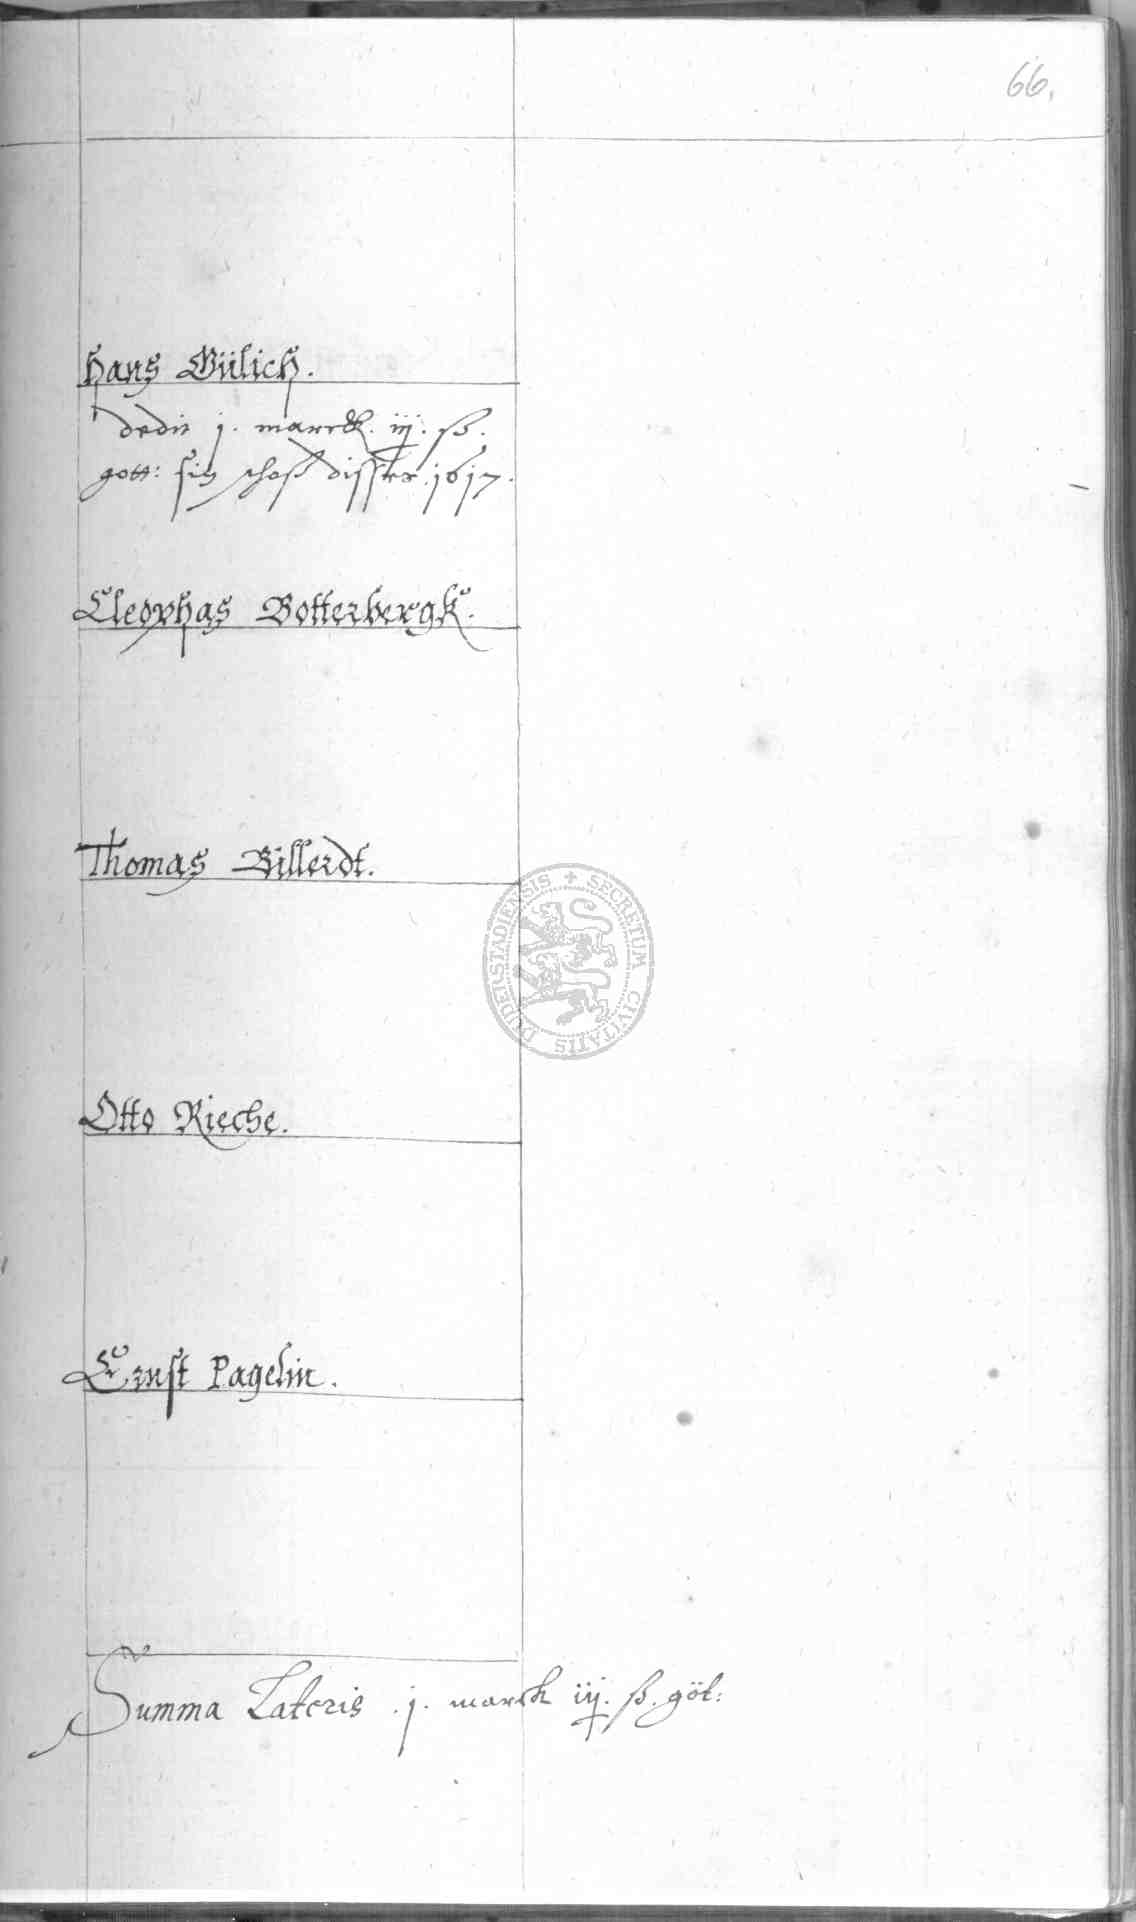 66.
Hans Gülich.
dedit j. marck. iij. ß.
gött: sin schoß disser 1617.
Cleophas Botterbergk.
Thomas Billerdt.
Otto Rieche.
DUDERSTADIENSIS + SECRETUM CIVITATIS
Ernst Pagelin.
Summa Lateris .j. marck iij. ß. göt: